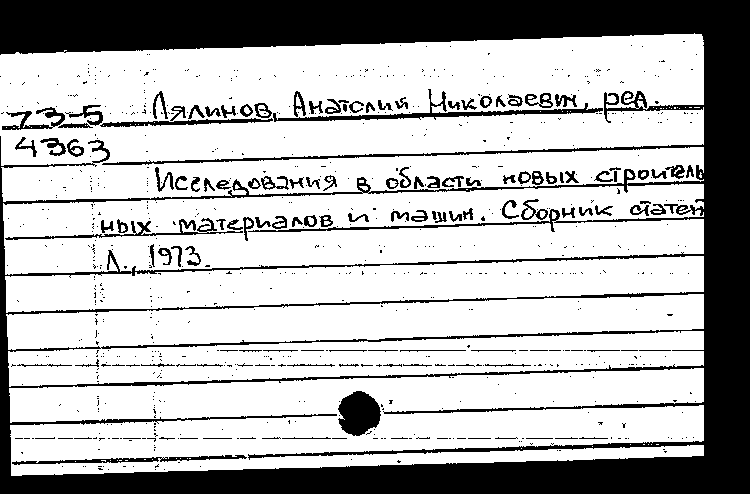 73-5 Лялинов, Анатолий Николаевич, ред.
4363
Исследования в области новых строитель
ных материалов и машин. Сборник статей
Л., 1973.